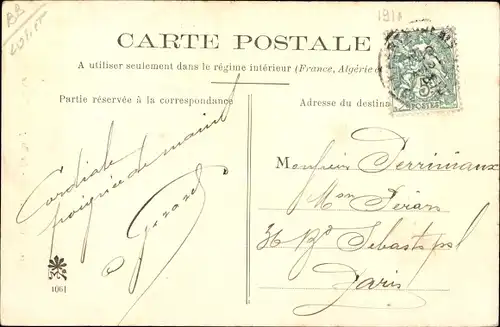 1914
CARTE POSTALE
A utiliser seulement dans le régime intérieur (France, Algérie
Partie réservée à la correspondance
Adresse du destina
POSTES
Cordiale
poignée de main
Gérard
Monsieur Perrimaux
Mon Péran
36 Bd Sebastopol
Paris
1061